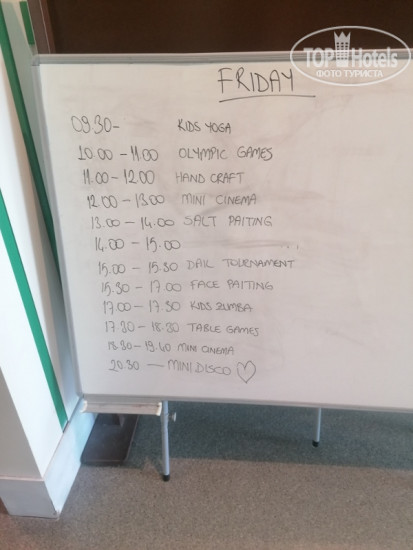 TOPHotels
ФОТО ТУРИСТА
FRIDAY
09.30- KIDS YOGA
10.00 - 11.00 OLYMPIC GAMES
11.00 - 12.00 HAND CRAFT
12.00 - 13.00 MINI CINEMA
13.00 - 14.00 SALT PAITING
14.00 - 15.00
15.00 - 15.30 DAIL TOURNAMENT
15.30 - 17.00 FACE PAITING
17.00 - 17.30 KIDS ZUMBA
17.30 - 18.30 TABLE GAMES
18.30 - 19.40 MINI CINEMA
20.30 — MINI DISCO ♡